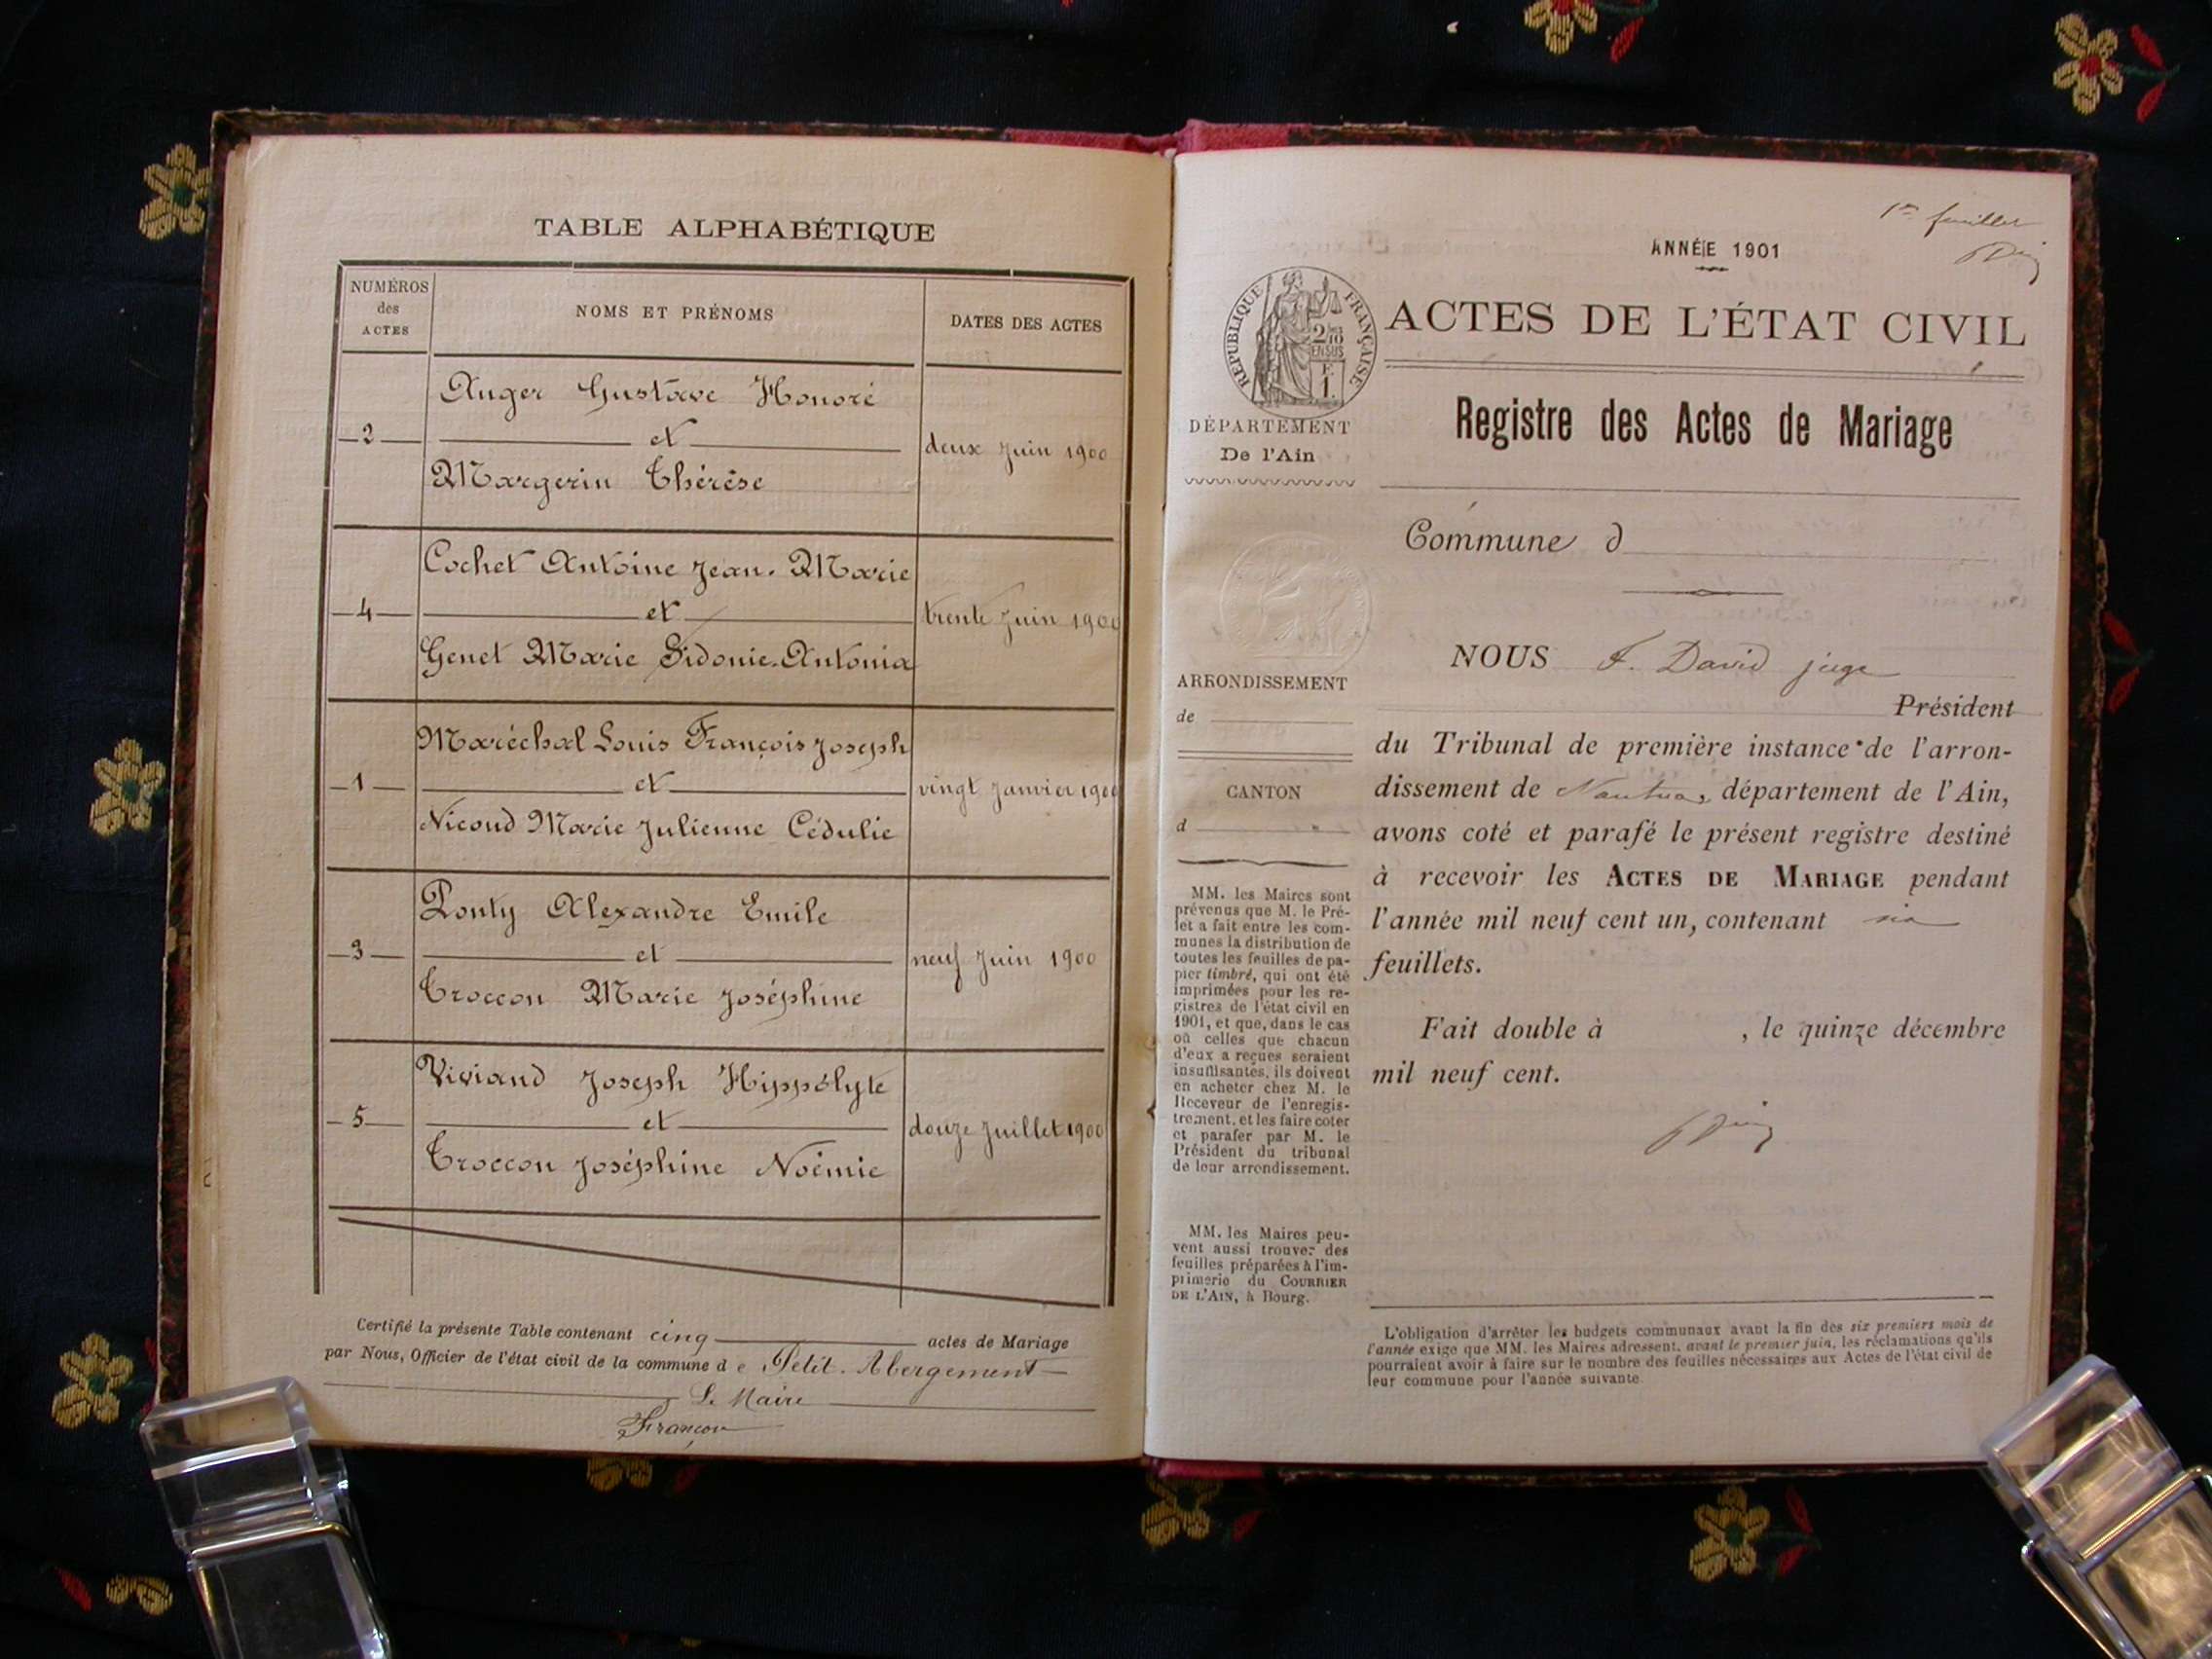 TABLE ALPHABÉTIQUE
NUMÉROS
des
ACTES
NOMS ET PRÉNOMS
DATES DES ACTES
Auger Gustave Honoré
2 et deux Juin 1900
Margerin Thérèse
Cochet Antoine Jean-Marie
4 et trente Juin 1900
Genet Marie Sidonie-Antonia
Maréchal Louis François Joseph
1 et vingt Janvier 1900
Nicoud Marie Julienne Cédulie
Ponty Alexandre Emile
3 et neuf Juin 1900
Troccon Marie Joséphine
Viviand Joseph Hippolyte
5 et douze Juillet 1900
Troccon Joséphine Noémie
Certifié la présente Table contenant cinq actes de Mariage
par Nous, Officier de l'état civil de la commune de Petit-Abergement
Le Maire
Françon
1er feuillet
ANNÉE 1901
RÉPUBLIQUE FRANÇAISE
2/10
EN SUS
F.
1.
ACTES DE L'ÉTAT CIVIL
Registre des Actes de Mariage
DÉPARTEMENT
De l'Ain
Commune d
ARRONDISSEMENT
de
CANTON
d
MM. les Maires sont
prévenus que M. le Pré-
fet a fait entre les com-
munes la distribution de
toutes les feuilles de pa-
pier timbré, qui ont été
imprimées pour les re-
gistres de l'état civil en
1901, et que, dans le cas
où celles que chacun
d'eux a reçues seraient
insuffisantes, ils doivent
en acheter chez M. le
Receveur de l'enregis-
trement, et les faire coter
et parafer par M. le
Président du tribunal
de leur arrondissement.
MM. les Maires peu-
vent aussi trouver des
feuilles préparées à l'im-
primerie du COURRIER
DE L'AIN, à Bourg.
NOUS F. David juge
Président
du Tribunal de première instance de l'arron-
dissement de Nantua, département de l'Ain,
avons coté et parafé le présent registre destiné
à recevoir les ACTES DE MARIAGE pendant
l'année mil neuf cent un, contenant six
feuillets.
Fait double à , le quinze décembre
mil neuf cent.
L'obligation d'arrêter les budgets communaux avant la fin des six premiers mois de
l'année exige que MM. les Maires adressent, avant le premier juin, les réclamations qu'ils
pourraient avoir à faire sur le nombre des feuilles nécessaires aux Actes de l'état civil de
leur commune pour l'année suivante.